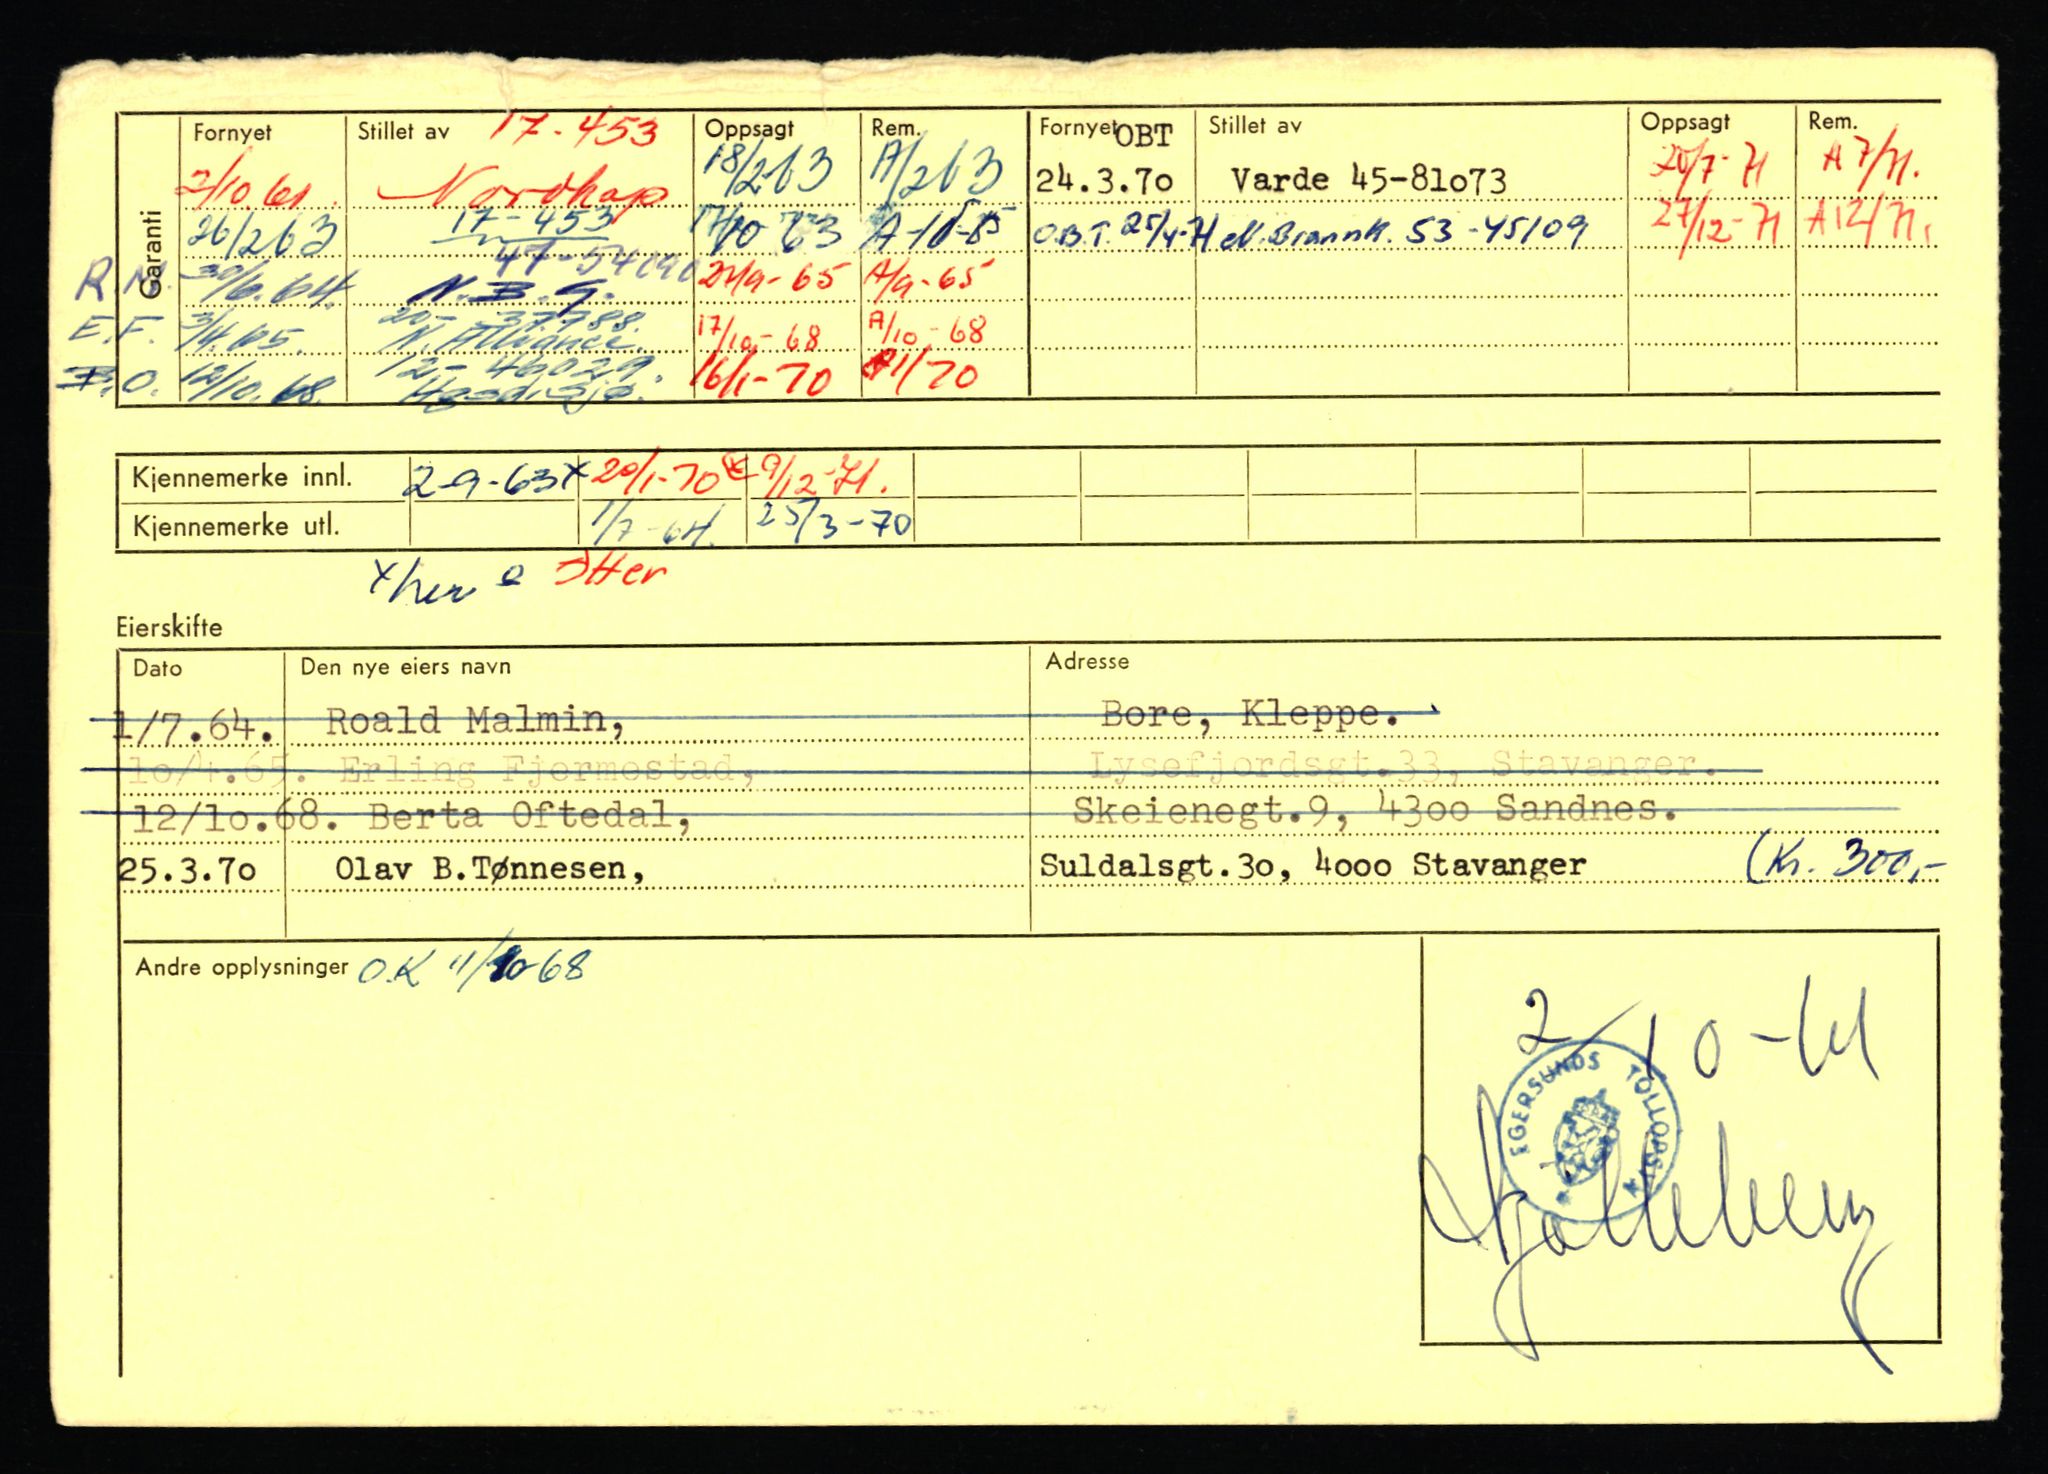 Garanti
Fornyet Stillet av 17-453 Oppsagt Rem. Fornyet OBT Stillet av Oppsagt Rem.
2/10 61. Nordkap 18/2 63 A/2 63 24.3.70 Varde 45-81073 20/7-71 A 7/71.
26/2 63 17-453 17/10 63 O.B.T. 25/4-71 N. Brannk. 53-45109 27/12-71 A 12/71.
R.M. 30/6.64. N.B.G. 27/9-65 A/9-65
E.F. 3/4.65. 20-37788. N. Alliance. 17/10-68 A/10-68
B.O. 12/10.68. 12-46029. 16/1-70 A1/70
Kjennemerke innl. 2-9-63 x 20/1-70 9/12-71.
Kjennemerke utl. 1/7-64. 25/3-70
x her Her
Eierskifte
Dato Den nye eiers navn Adresse
1/7.64. Roald Malmin, Bore, Kleppe.
10/4.65. Erling Fjermestad, Lysefjordsgt.33, Stavanger.
12/10.68. Berta Oftedal, Skeienegt.9, 4300 Sandnes.
25.3.70 Olav B.Tønnesen, Suldalsgt.30, 4000 Stavanger (Kr. 300,-
Andre opplysninger O.K 11/10-68
2/10-61
EGERSUNDS TOLLOPPSYN